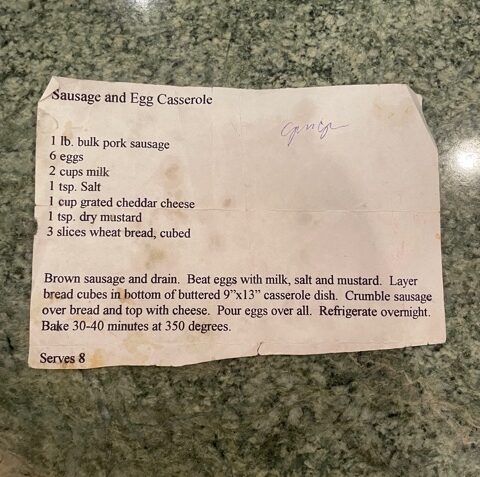 Sausage and Egg Casserole
1 lb. bulk pork sausage
6 eggs
2 cups milk
1 tsp. Salt
1 cup grated cheddar cheese
1 tsp. dry mustard
3 slices wheat bread, cubed
Brown sausage and drain. Beat eggs with milk, salt and mustard. Layer
bread cubes in bottom of buttered 9”x13” casserole dish. Crumble sausage
over bread and top with cheese. Pour eggs over all. Refrigerate overnight.
Bake 30-40 minutes at 350 degrees.
Serves 8